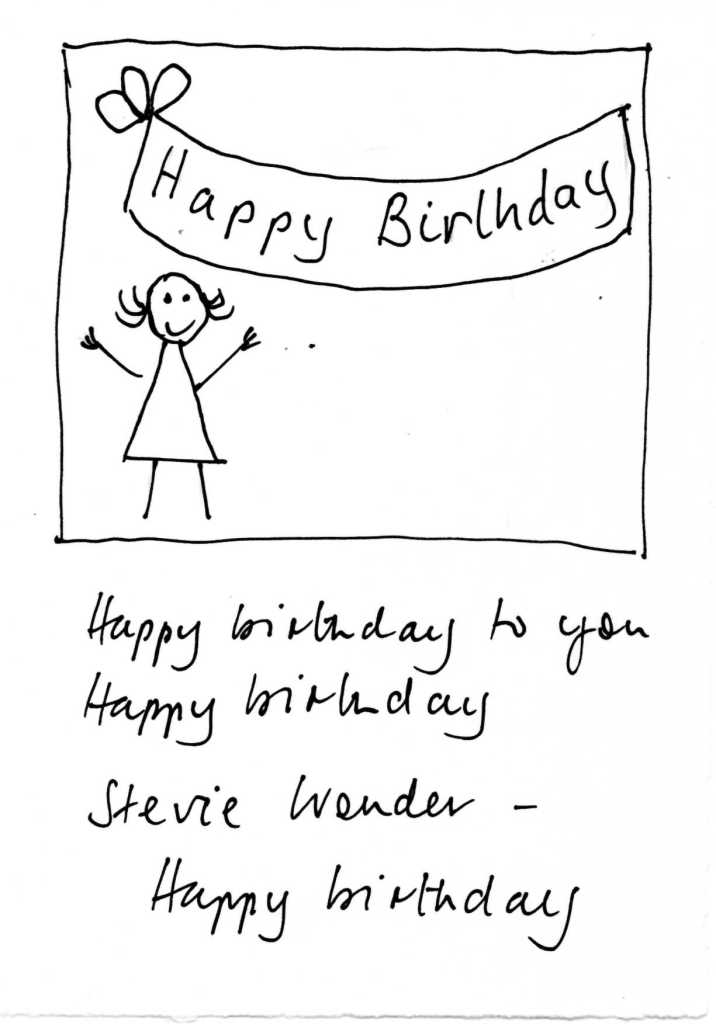 Happy Birthday
Happy birthday to you
Happy birthday
Stevie Wonder -
Happy birthday